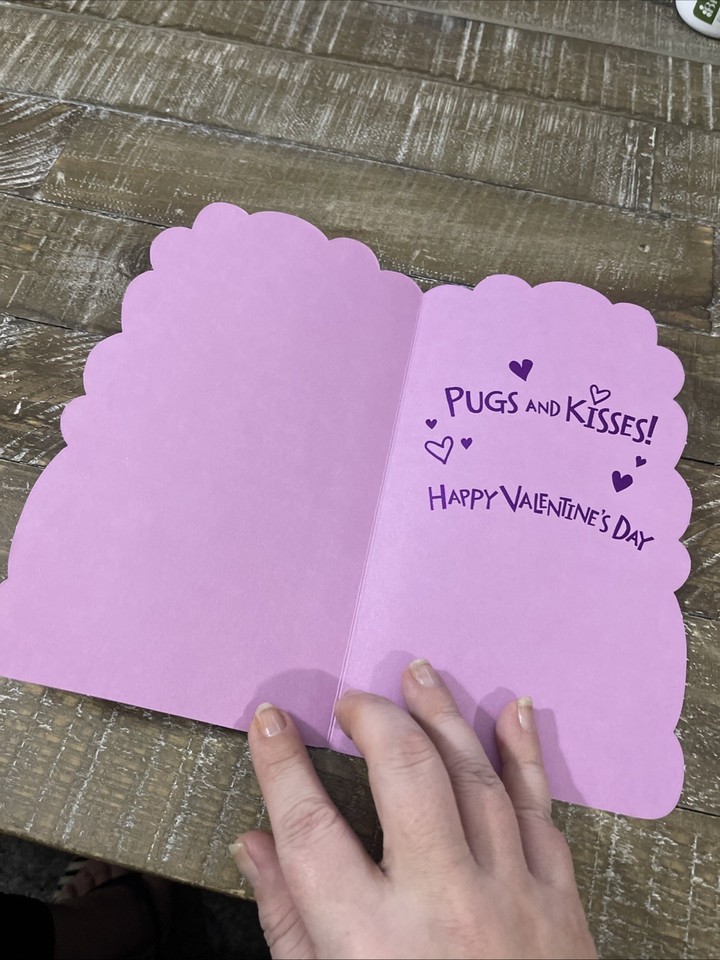 PUGS AND KISSES!
HAPPY VALENTINE'S DAY